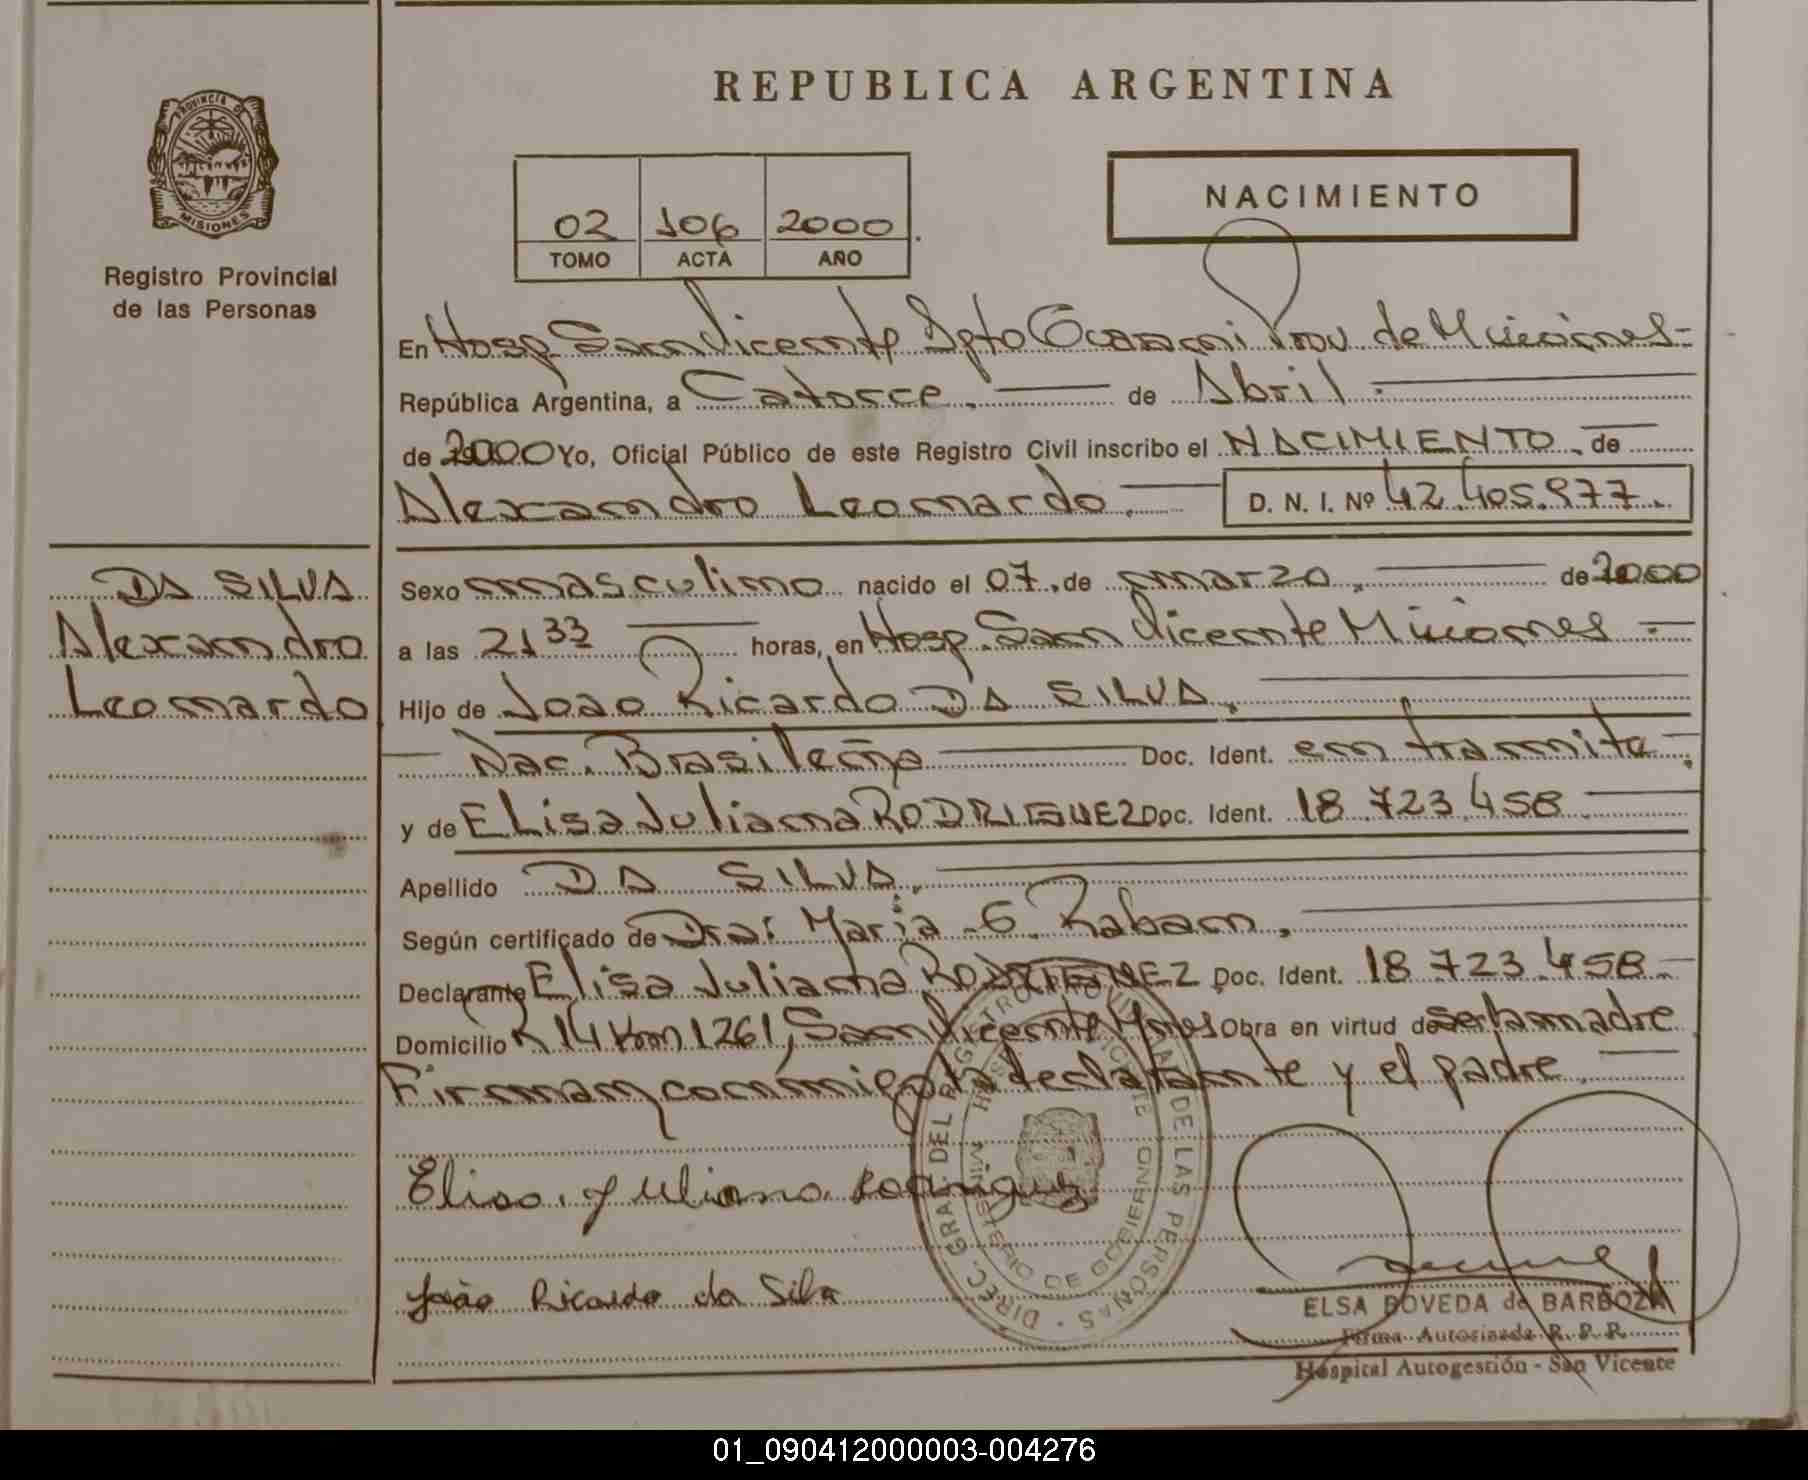 REPUBLICA ARGENTINA
PROVINCIA DE
MISIONES
Registro Provincial
de las Personas
02 106 2000
TOMO ACTA AÑO
NACIMIENTO
En Hosp. San Vicente Dpto Guarani Prov de Misiones =
República Argentina, a Catorce. de Abril.
de 2000 Yo, Oficial Público de este Registro Civil inscribo el NACIMIENTO, de
Alexandro Leonardo. D. N. I. Nº 42.405.977.
DA SILVA
Alexandro
Leonardo
Sexo masculino nacido el 07, de marzo, de 2000
a las 21 33 horas, en Hosp. San Vicente Misiones =
Hijo de Joao Ricardo DA SILVA,
Nac. Brasileña Doc. Ident. en tramite.
y de Elisa Juliana RODRIGUEZ Doc. Ident. 18.723.458
Apellido DA SILVA,
Según certificado de Dra: Maria G. Raban,
Declarante Elisa Juliana RODRIGUEZ Doc. Ident. 18.723.458
Domicilio R 14 Km 1261, San Vicente Mnes Obra en virtud de ser la madre
Firman conmigo la declarante y el padre.
Elisa Juliana Rodriguez
João Ricardo da Silva
DIREC. GRAL. DEL REGISTRO PROVINCIAL DE LAS PERSONAS
MINISTERIO DE GOBIERNO
ELSA BOVEDA de BARBOZA
Firma Autorizada R. P. P.
Hospital Autogestión - San Vicente
01_090412000003-004276